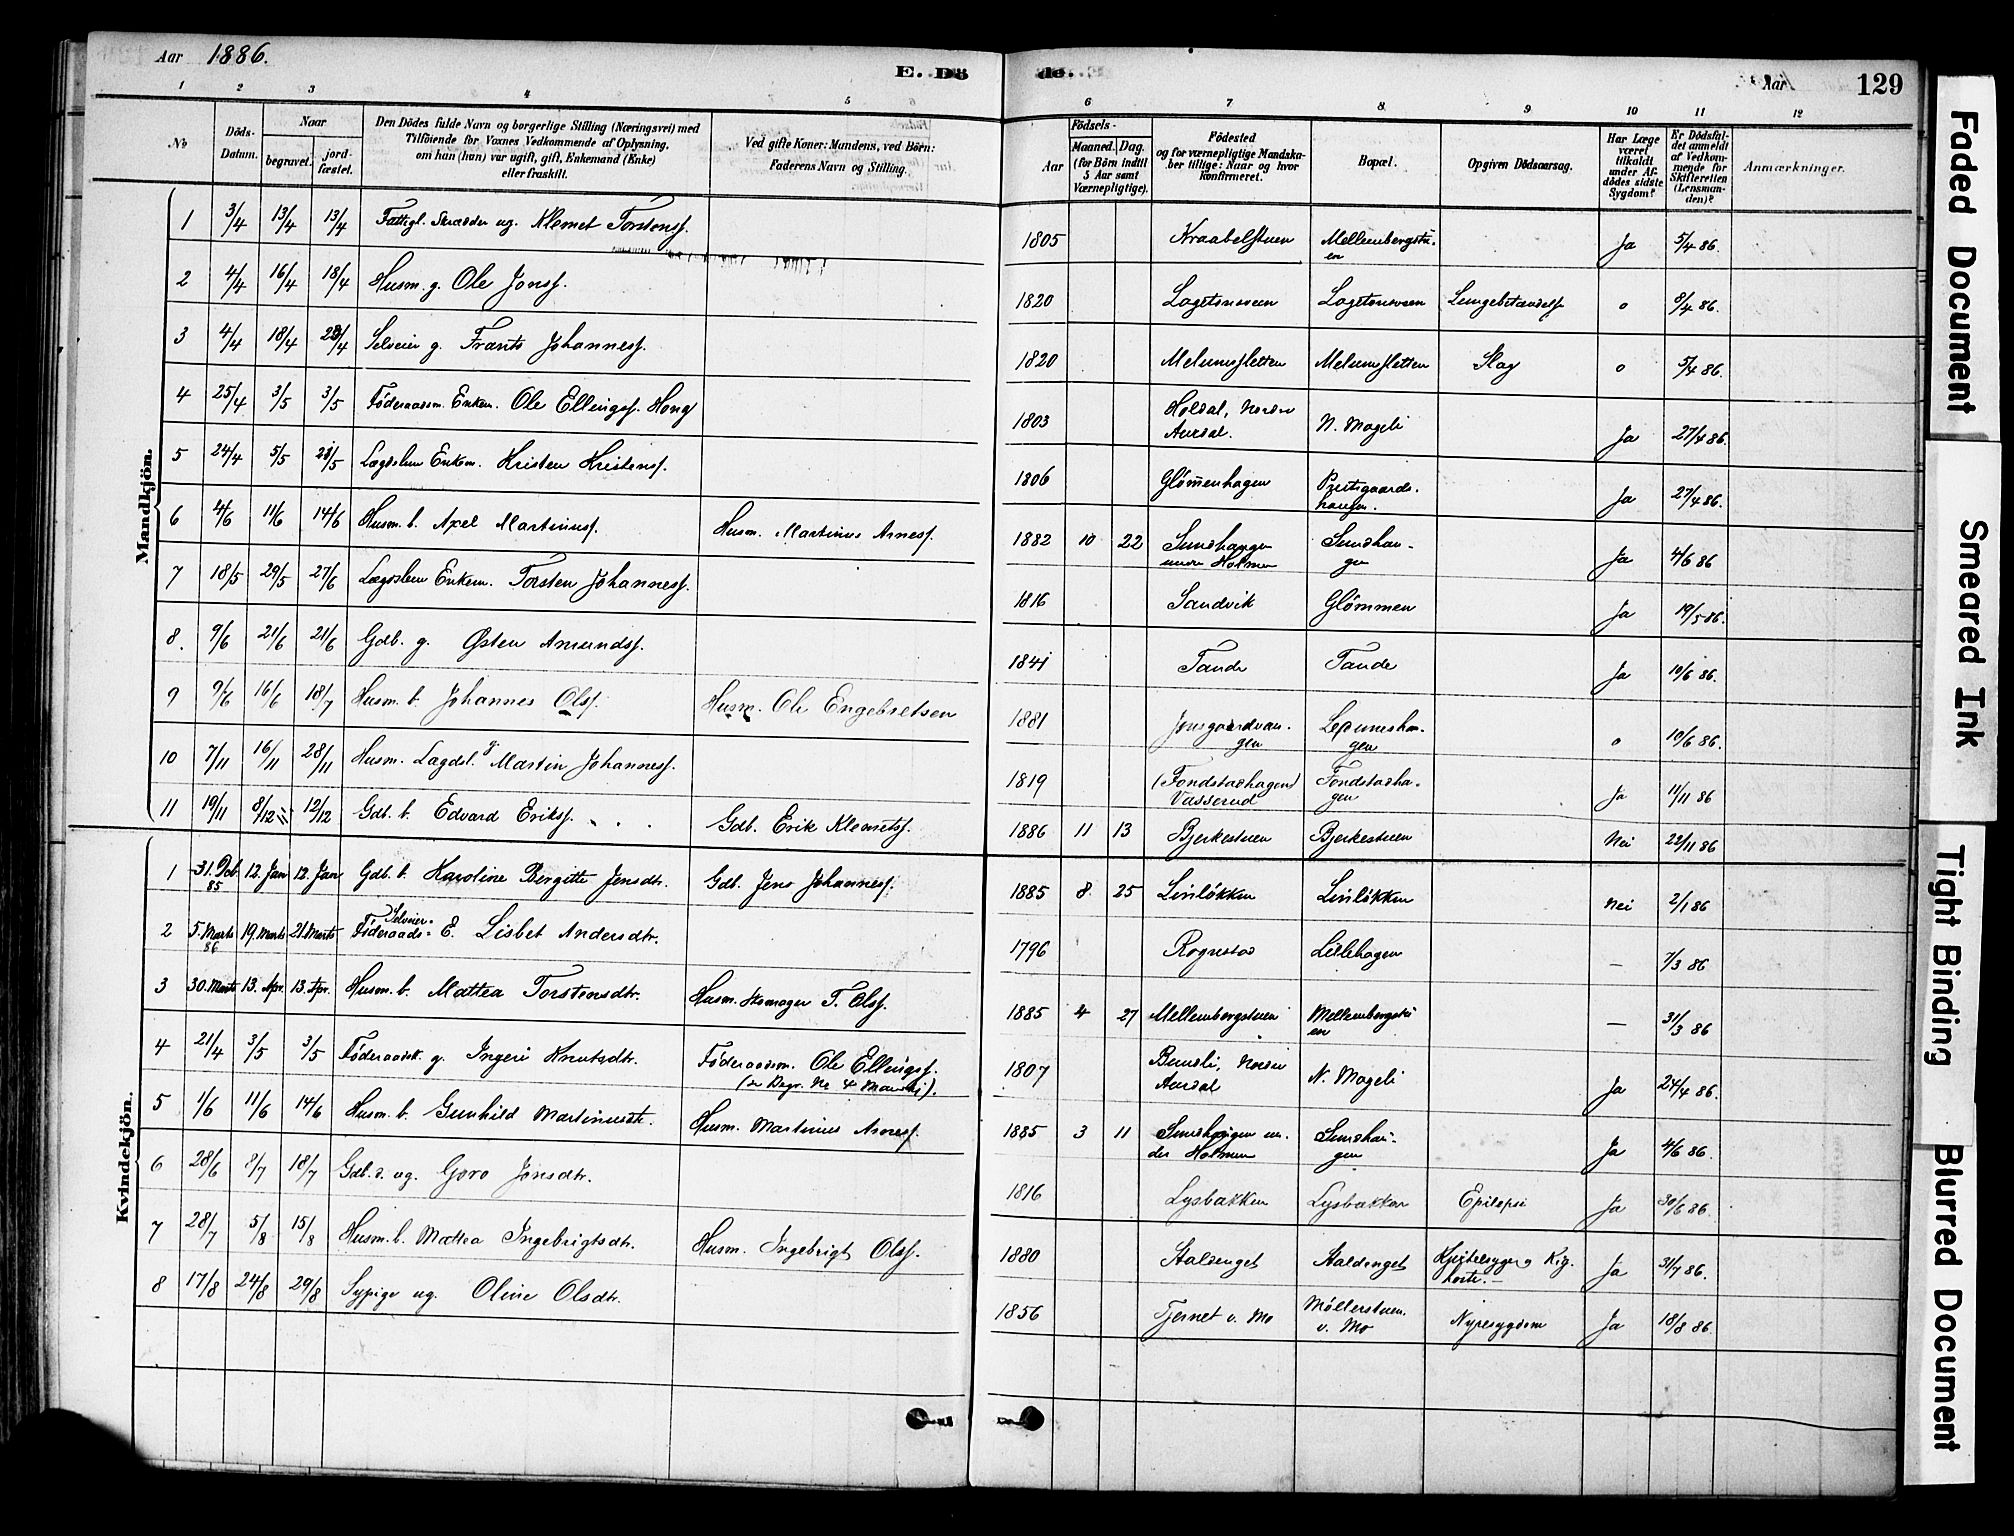 Aar 1886.
E. Dö
de.
Aar
129
1 2 3 4 5 6 7 8 9 10 11 12
No
Döds-Datum.
Naar
begravet.
jord-fæstet.
Den Dödes fulde Navn og borgerlige Stilling (Næringsvei) med
Tilföiende for Voxnes Vedkommende af Oplysning,
om han (hun) var ugift, gift, Enkemand (Enke)
eller fraskilt.
Ved gifte Koner: Mandens, ved Börn:
Faderens Navn og Stilling.
Födsels-
Aar
Maaned. Dag.
(for Börn indtil
5 Aar samt
Værnepligtige).
Födested
og for værnepligtige Mandska-
ber tillige: Naar og hvor
konfirmeret.
Bopæl.
Opgiven Dödsaarsag.
Har Læge
været
tilkaldt
under Af-
dödes sidste
Sygdom?
Er Dödsfal-
det anmeldt
af Vedkom-
mende for
Skifteretten
(Lensman-
den)?
Anmærkninger.
Mandkjön.
1 3/4 13/4 13/4 Fattigl. Skrædder ug. Klemet Torstenss. 1805 Kraabelstuen Mellembergstu-
en Ja 5/4 86.
2 4/4 16/4 18/4 Husm. g. Ole Jonss. 1820 Lagetonsveen Lagetonsveen Lungebetændelse o 8/4 86.
3 4/4 18/4 /4 Selveier g. Frants Johanness. 1820 Melumssletten Melumssletten Slag o 5/4 86.
4 25/4 3/5 3/5 Föderaadsm. Enkem. Ole Ellingss. 1803 Holdal, Nordre
Aurdal. N. Mageli Ja 27/4 86.
5 24/4 5/5 /5 Lægdslem Enkem. Kristen Kristenss. 1806 Glömmenhagen Prestgaards-
haugen. Ja 27/4 86.
6 4/6 11/6 14/6 Husm. b. Axel Martinuss. Husm. Martinus Arness. 1882 10 22 Sundhaugen
under Holmen Sundhau-
gen Ja 4/6 86
7 18/5 29/5 27/6 Lægdslem Enkem. Torsten Johanness. 1816 Sandvik Glömmen Ja 19/5 86.
8. 9/6 21/6 21/6 Gdb. g. Østen Amundss. 1841 Tande Tande Ja 10/6 86.
9 9/6 16/6 18/7 Husm. b. Johannes Olss. Husm. Ole Engebretsen 1881 Jonsgaardhau-
gen hau-
gen o 10/6 86.
10 7/11 16/11 28/11 Husm. Lægdsl. g. Martin Johanness. 1819 (Fondstadhagen)
Vasserud Fondstadha-
gen Ja 11/11 86
11 19/11 8/12 12/12 Gdb. b. Edvard Erikss. Gdb. Erik Klemetss. 1886 11 13 Bjerkestuen Bjerkestuen Nei 22/11 86
Kvindekjön.
1 31. Dcb 85 12. Jan 12. Jan Gdb. b. Karoline Bergitte Jensdtr. Gdb. Jens Johanness. 1885 8 25 Linlökken Linlökken Nei 2/1 86
2 5. Marts 86 19. Marts 21. Marts Selveier-
Föderaads- E. Lisbet Andersdtr. 1796 Rognstad Lillehagen — 7/3 86
3 30. Marts 13. Apr. 13. Apr. Husm. b. Mattea Torstensdtr. Husm. Skomager T. Olss. 1885 4 27 Mellembergstuen Mellembergstu
en — 31/3 86
4 21/4 3/5 3/5 Föderaadsk. g. Ingeri Knutsdtr. Föderaadsm. Ole Ellingss.
(se Begr. No 4 Mandkj). 1807 Nordre
Aurdal N. Mageli Ja 24/4 86.
5 1/6 11/6 14/6 Husm. b. Gunhild Martinusdtr. Husm. Martinus Arness. 1885 3 11 Sundhaugen un-
der Holmen Sundhau-
gen Ja 4/6 86.
6 28/6 8/7 18/7 Gdb. d. ug. Goro Jonsdtr. 1816 Lysbakken Lysbakken Epilepsi Ja 30/6 86.
7 28/7 5/8 15/8 Husm. b. Mattea Ingebrigtsdtr. Husm. Ingebrigt Olss. 1880 Staldenget Staldenget Kjertelsyge og Kig-
hoste.— Ja 31/7 86.
8 17/8 24/8 29/8 Sypige ug. Oline Olsdtr. 1856 Tjernet v. Mo Möllerstuen
v. Mo Nyresygdom Ja 18/8 86.
Faded Document
Smeared Ink
Tight Binding
Blurred Document